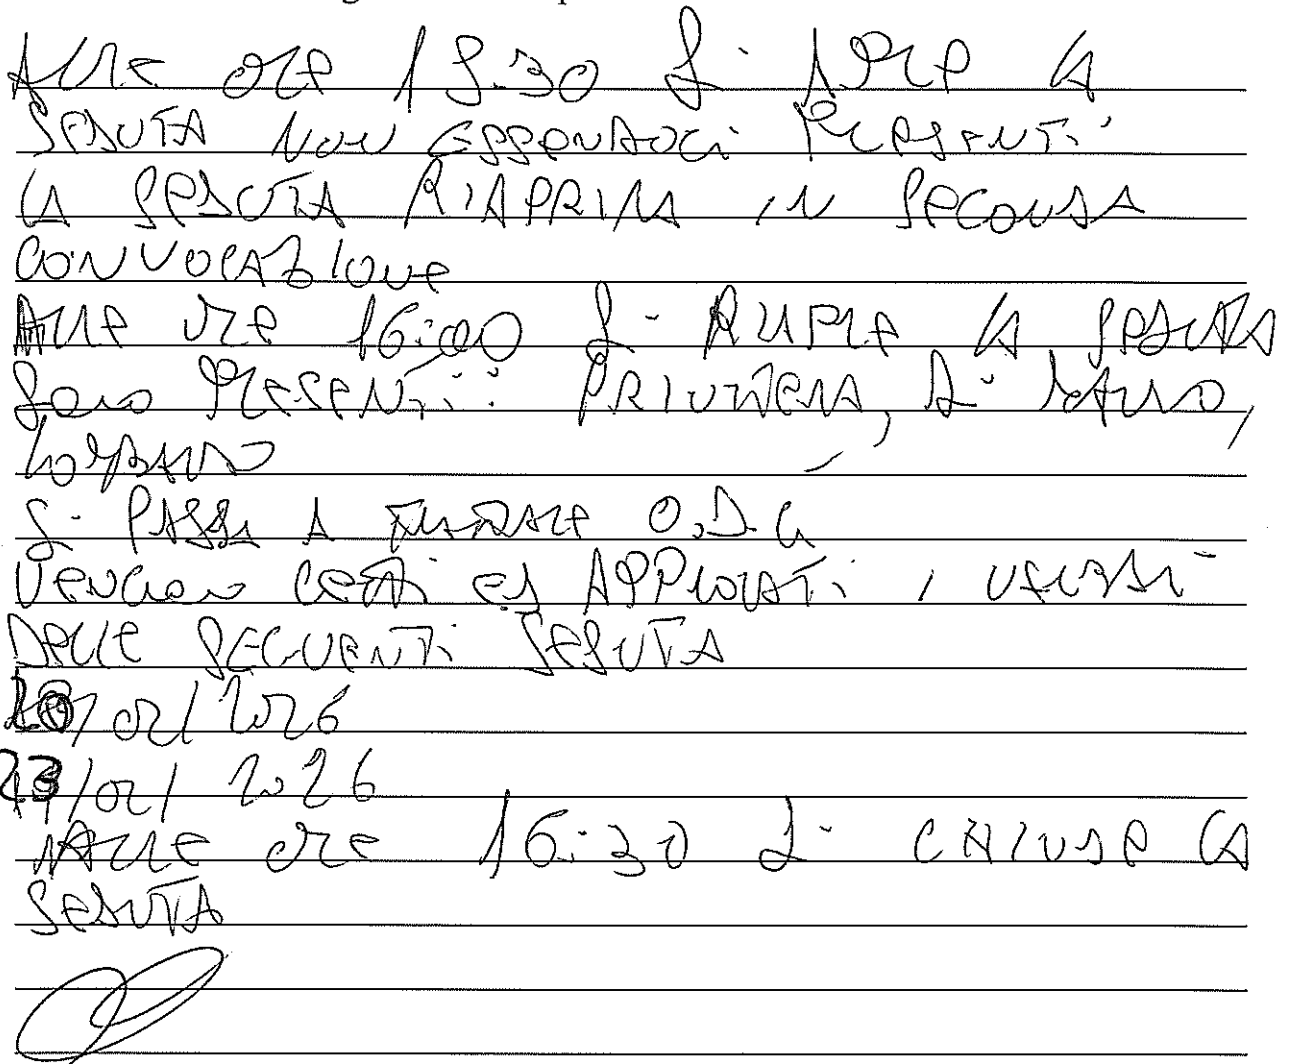 Alle ore 15.30 si apre la
seduta non essendoci presenti
la seduta riaprirà in seconda
convocazione
Alle ore 16:00 si riapre la seduta
sono presenti: Privitera, Di Mauro,
Lombardo
si passa a trattare O.D.G
Vengono letti ed approvati i verbali
delle seguenti seduta
20/02/2026
23/02/2026
Alle ore 16:30 si chiude la
seduta